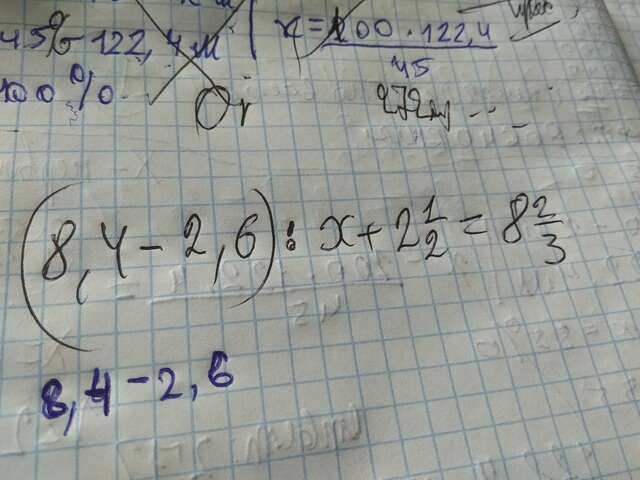 45% - 122,4 м | x = 100 · 122,4
45
100%
272м
(8,4 - 2,6) : x + 2 1/2 = 8 2/3
8,4 - 2,6